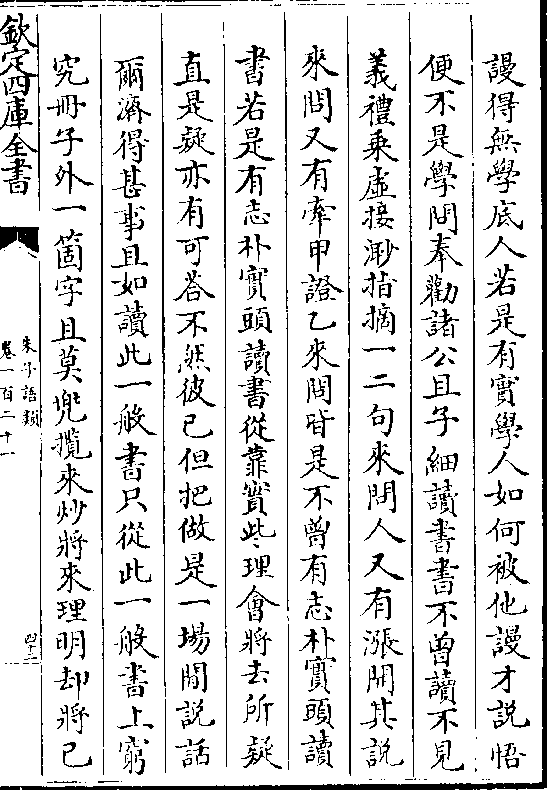 謾得無學底人若是有實學人如何被他謾才説悟
便不是學問奉勸諸公且子細讀書書不曾讀不見
義禮乗虚接渺指摘一二句來問人又有漲開其説
來問又有牽甲證乙來問皆是不曾有志朴實頭讀
書若是有志朴實頭讀書從靠實些理會將去所疑
直是疑亦有可荅不然彼已但把做是一場閒説話
爾濟得甚事且如讀此一般書只從此一般書上窮
究冊子外一箇字且莫兜攬來炒將來理明却將已
欽定四庫全書
朱子語類
卷一百二十一
四十二